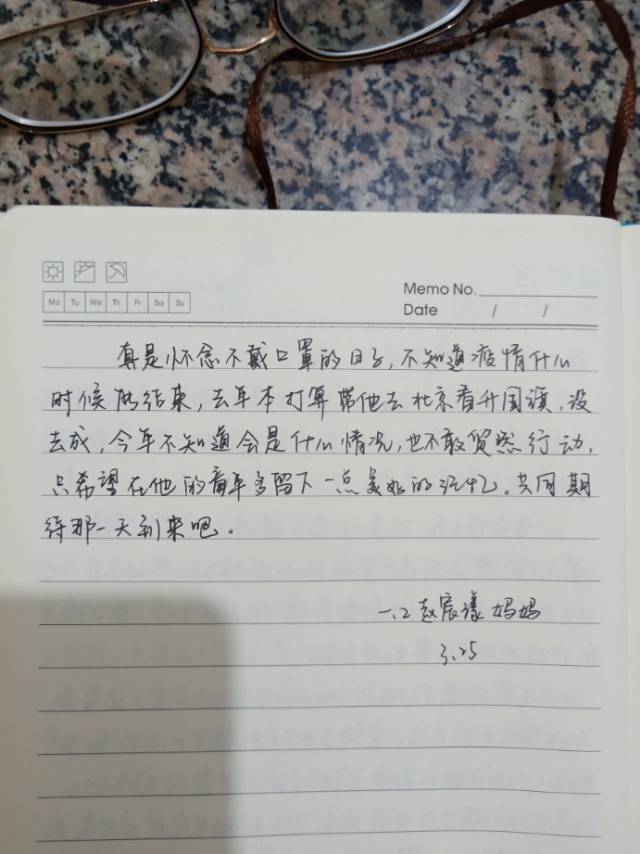 Mo Tu We Th Fr Sa Su
Memo No.
Date / /
真是怀念不戴口罩的日子,不知道疫情什么
时候能结束,去年本打算带他去北京看升国旗,没
去成,今年不知道会是什么情况,也不敢贸然行动,
只希望在他的童年多留下一点美好的记忆。共同期
待那一天到来吧。
一.2 赵宸漾妈妈
3.25